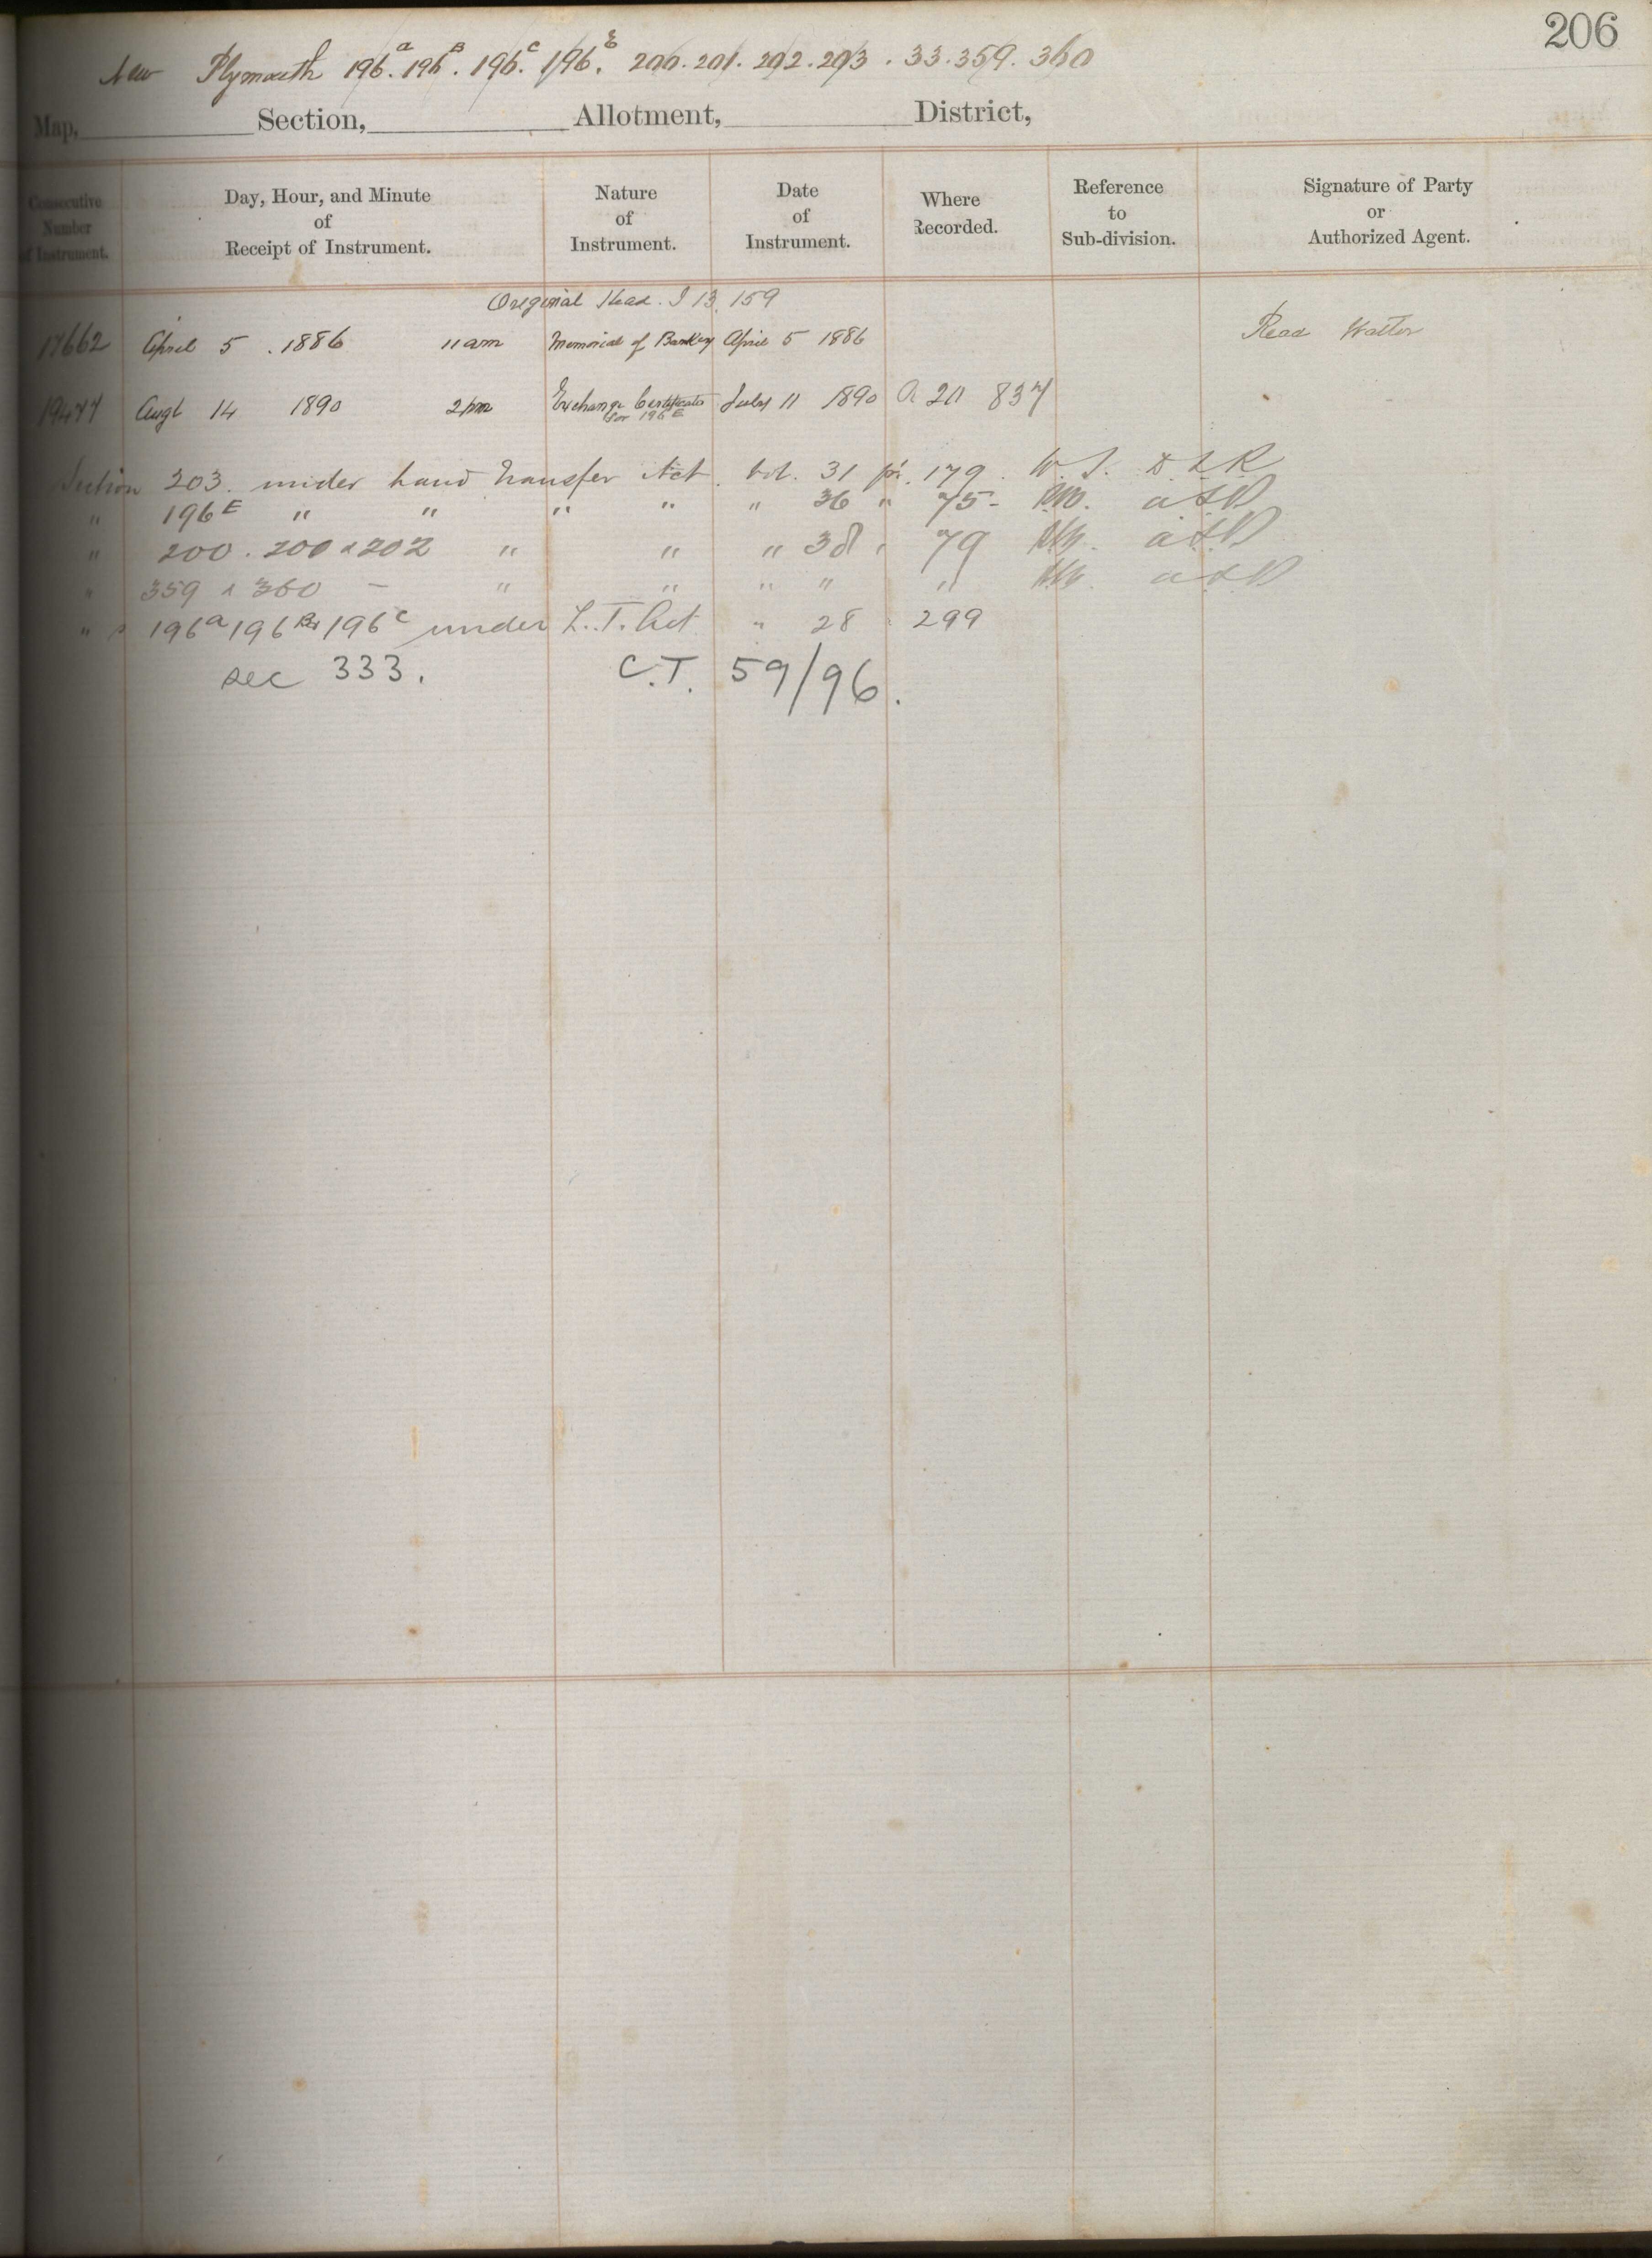 206
New Plymouth 196.a 196.B 196.c 196.E 200. 201. 202. 203. 33. 359. 360
Map, Section, Allotment, District,
Consecutive Number of Instrument. Day, Hour, and Minute of Receipt of Instrument. Nature of Instrument. Date of Instrument. Where Recorded. Reference to Sub-division. Signature of Party or Authorized Agent.
Original Head. I 13. 159
17662 April 5 . 1886 11 am Memorial of Bankcy April 5 1886 Read Walter
19477 Augt 14 1890 2 pm Exchange Certificate July 11 1890 A 20 837
for 196 E
Section 203. under Land Transfer Act. Vol. 31 fo. 179. W. S. D L R
" 196E " " " " " 36 " 75 - ALR
" 200. 200 & 202 " " " 38 " 79 ALR
" 359 & 360 - " " " " " ALR
" s 196a 196B & 196c under L. T. Act " 28 299
sec 333. C.T. 59/96.